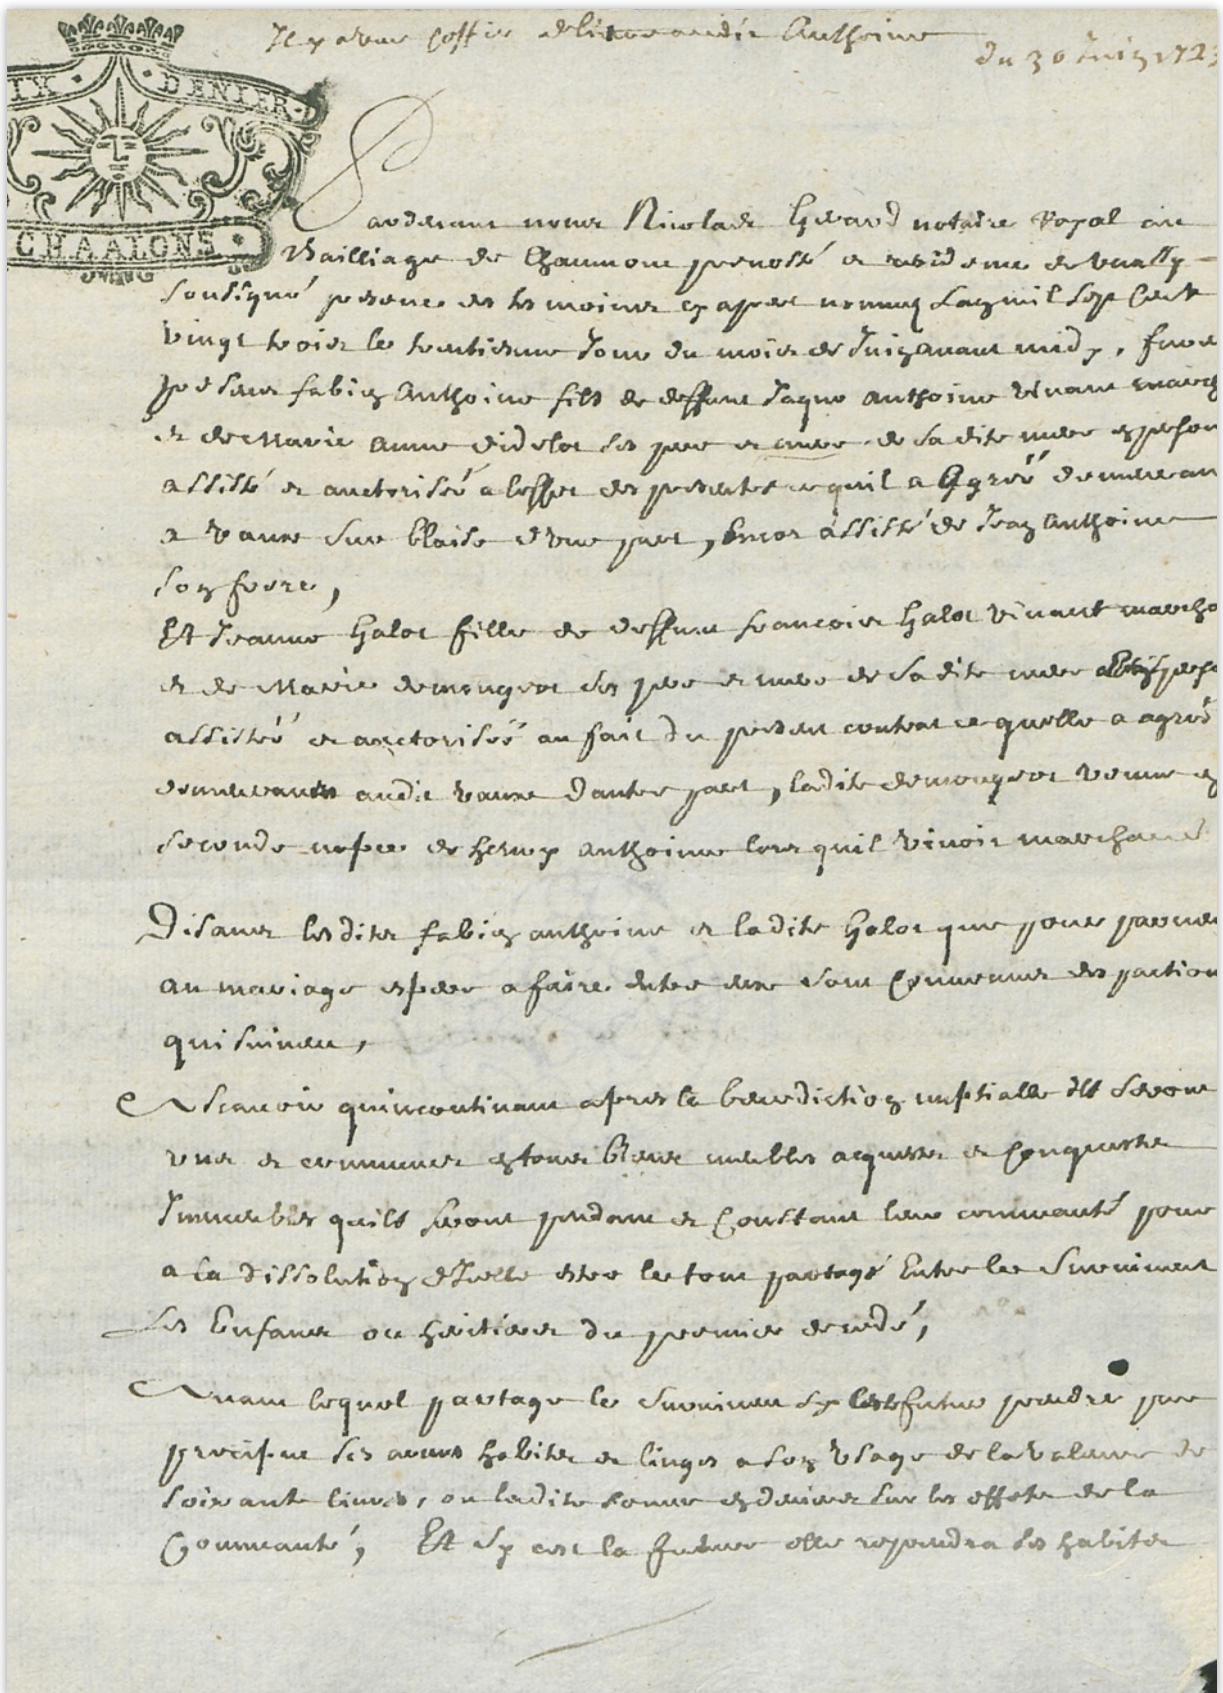 Il y a une coppie delivree audit Anthoine
du 30 Juin 1723
IX DENIER
CHAALONS
Pardevant nous Nicolas Gerard notaire Royal au
Bailliage de Chaumont prevosté et residence de
soussigné presence des tesmoins cy apres nommez Lan mil sept Cent
vingt trois le trentiesme Jour du mois de Juin avant midy, furent
presens fabien Anthoine fils de deffunt Jaque Anthoine vivant march
et de Marie Anne Didelot ses pere et mere de sa dite mere en person
assisté et auctorisé a leffet des presentes ce quil a Agréé demeuran
a vaux sur blaise d'une part, Encor assisté de Jean Anthoine
son frere,
Et Jeanne Halot fille de deffunt francois Halot vivant marcha
et de Marie demongeot ses pere et mere de sa dite mere
assistée et auctorisée au fait du present contrat ce quelle a agréé
demeurantes audit vaux dautre part, ladite demongeot veuve en
seconde nopce de henry Anthoine lors quil vivoit marchand
Disans lesdites fabien anthoine et ladite Halot que pour parven
au mariage espere a faire entre eux sont Convenus des paction
qui suivent,
Ascavoir quincontinant apres la benediction nuptialle ils seront
uns et communs en tous biens meubles acquests et Conquests
Immeubles quils feront pendant et Constant leur communauté pour
a la dissolution d'Icelle estre le tout partagé Entre le survivant
Les Enfans ou heritiers du premier decedé,
Avant lequel partage le survivant sy cest le futur prendra par
preciput ses armes habits et linges a son Usage de la valeur de
soixante livres, ou ladite somme en deniers sur les effets de la
Communauté, Et sy cest la future elle reprendra ses habits